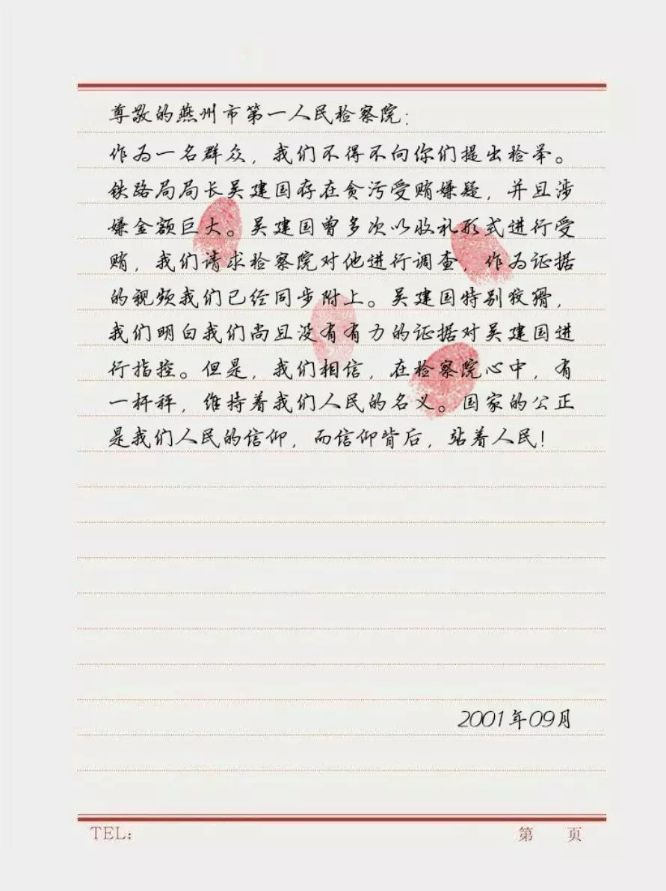 尊敬的燕州市第一人民检察院：
作为一名群众，我们不得不向你们提出检举。
铁路局局长吴建国存在贪污受贿嫌疑，并且涉
嫌金额巨大。吴建国曾多次以收礼形式进行受
贿，我们请求检察院对他进行调查，作为证据
的视频我们已经同步附上。吴建国特别狡猾，
我们明白我们尚且没有有力的证据对吴建国进
行指控。但是，我们相信，在检察院心中，有
一杆秤，维持着我们人民的名义。国家的公正
是我们人民的信仰，而信仰背后，站着人民！
2001年09月
TEL： 第 页